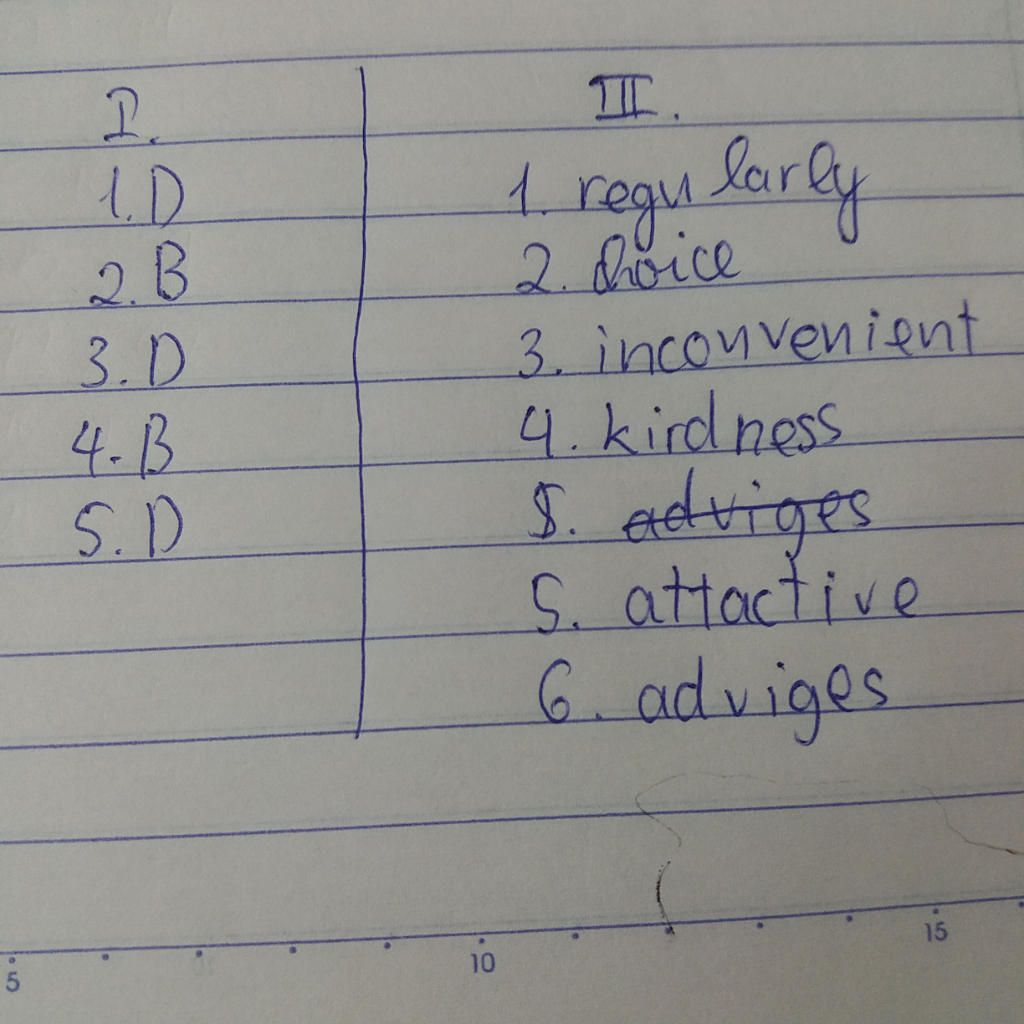 I.
1. D
2. B
3. D
4. B
5. D
III.
1. regularly
2. choice
3. inconvenient
4. kirdness
5. adviges
5. attactive
6. adviges
5 10 15